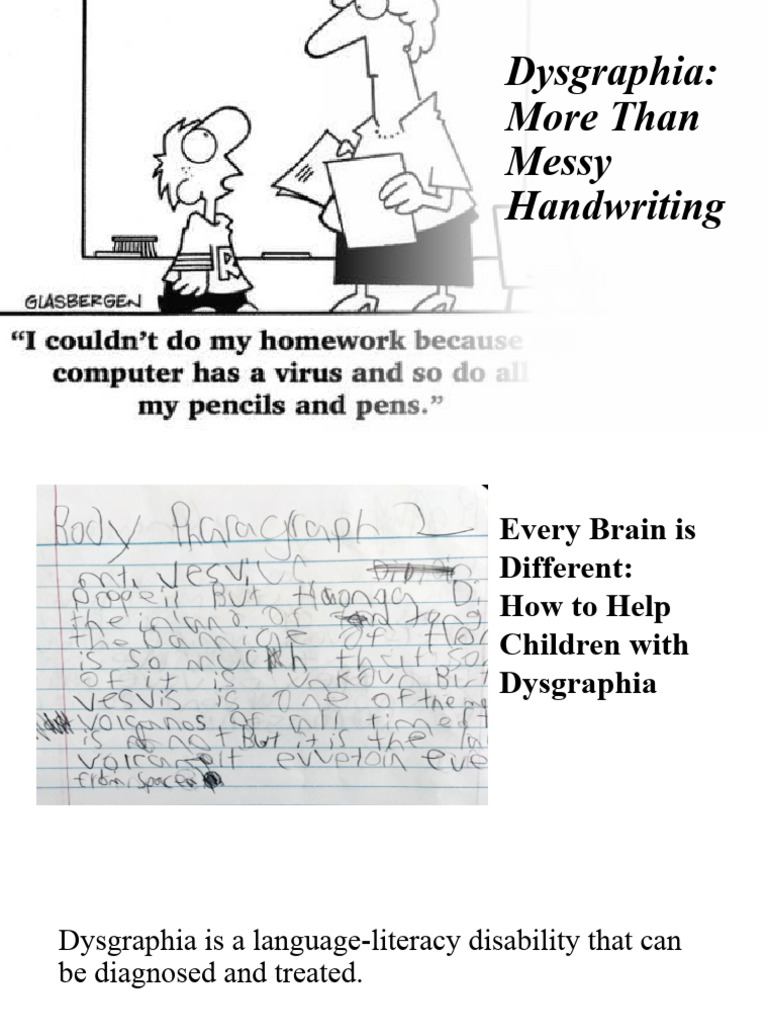 Dysgraphia:
More Than
Messy
Handwriting
GLASBERGEN
“I couldn’t do my homework because
computer has a virus and so do all
my pencils and pens.”
Body Pharagraph 2
mt. Vesviuc
popeii But Haonga Di
the inland of tong
the Damige of
is so muckh that so
of it is unkoun But
vesvis is one of the
volcanos of all timed t
is not But it is the la
volcanoit evvetoin eve
from space
Every Brain is
Different:
How to Help
Children with
Dysgraphia
Dysgraphia is a language-literacy disability that can
be diagnosed and treated.